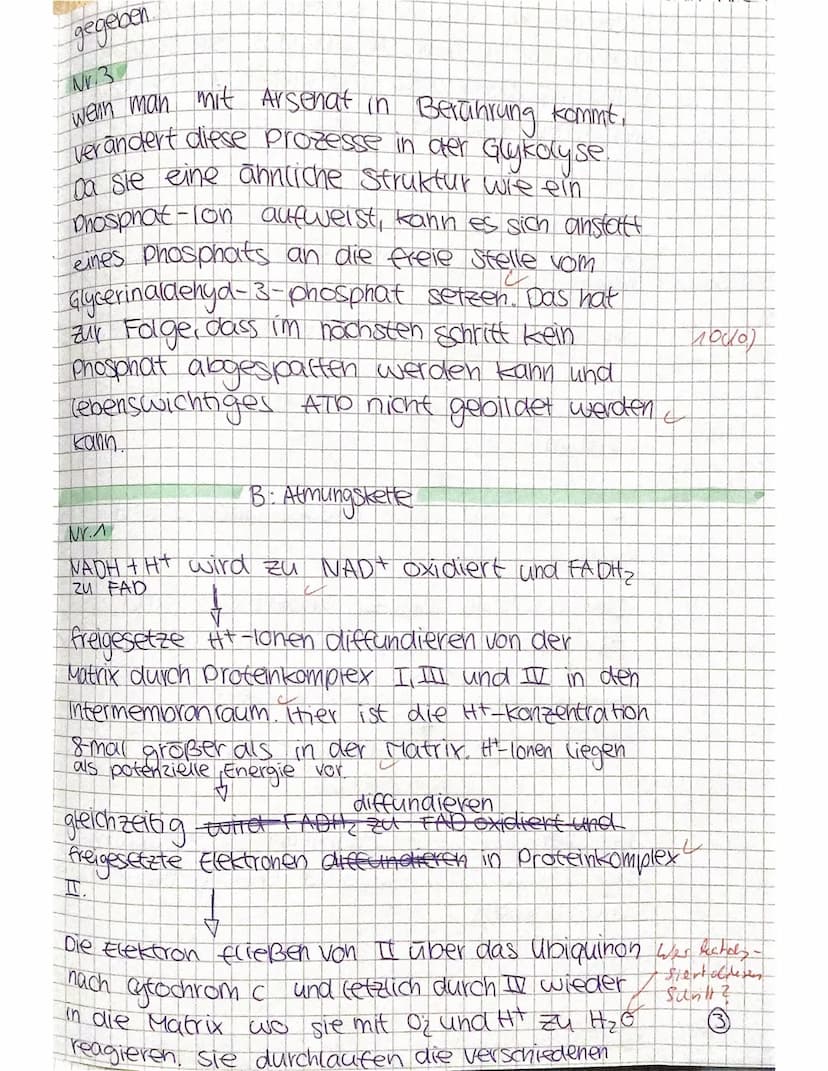 gegeben.
Nr.3
wenn man mit Arsenat in Berührung kommt,
verändert diese Prozesse in der Glykolyse.
Da sie eine ähnliche Struktur wie ein
Phosphat-Ion aufweist, kann es sich anstatt
eines Phosphats an die freie Stelle vom
Glycerinaldehyd-3-phosphat setzen. Das hat
zur Folge, dass im nächsten Schritt kein
10(10)
Phosphat abgespalten werden kann und
lebenswichtiges ATP nicht gebildet werden
kann.
B: Atmungskette
Nr.1
NADH + H+ wird zu NAD+ oxidiert und FADH2
zu FAD
freigesetze H+-Ionen diffundieren von der
Matrix durch Proteinkomplex I, III und IV in den
Intermembranraum. Hier ist die H+-Konzentration
8-mal größer als in der Matrix. H+-Ionen liegen
als potenzielle Energie vor.
diffundieren
gleichzeitig wird FADH2 zu FAD oxidiert und
freigesetzte Elektronen diffundieren in Proteinkomplex
II.
Die Elektron fließen von II über das Ubiquinon
nach cytochrom c und letzlich durch IV wieder
in die Matrix wo sie mit O2 und H+ zu H2O
reagieren. Sie durchlaufen die verschiedenen
Was
Schritt?
3